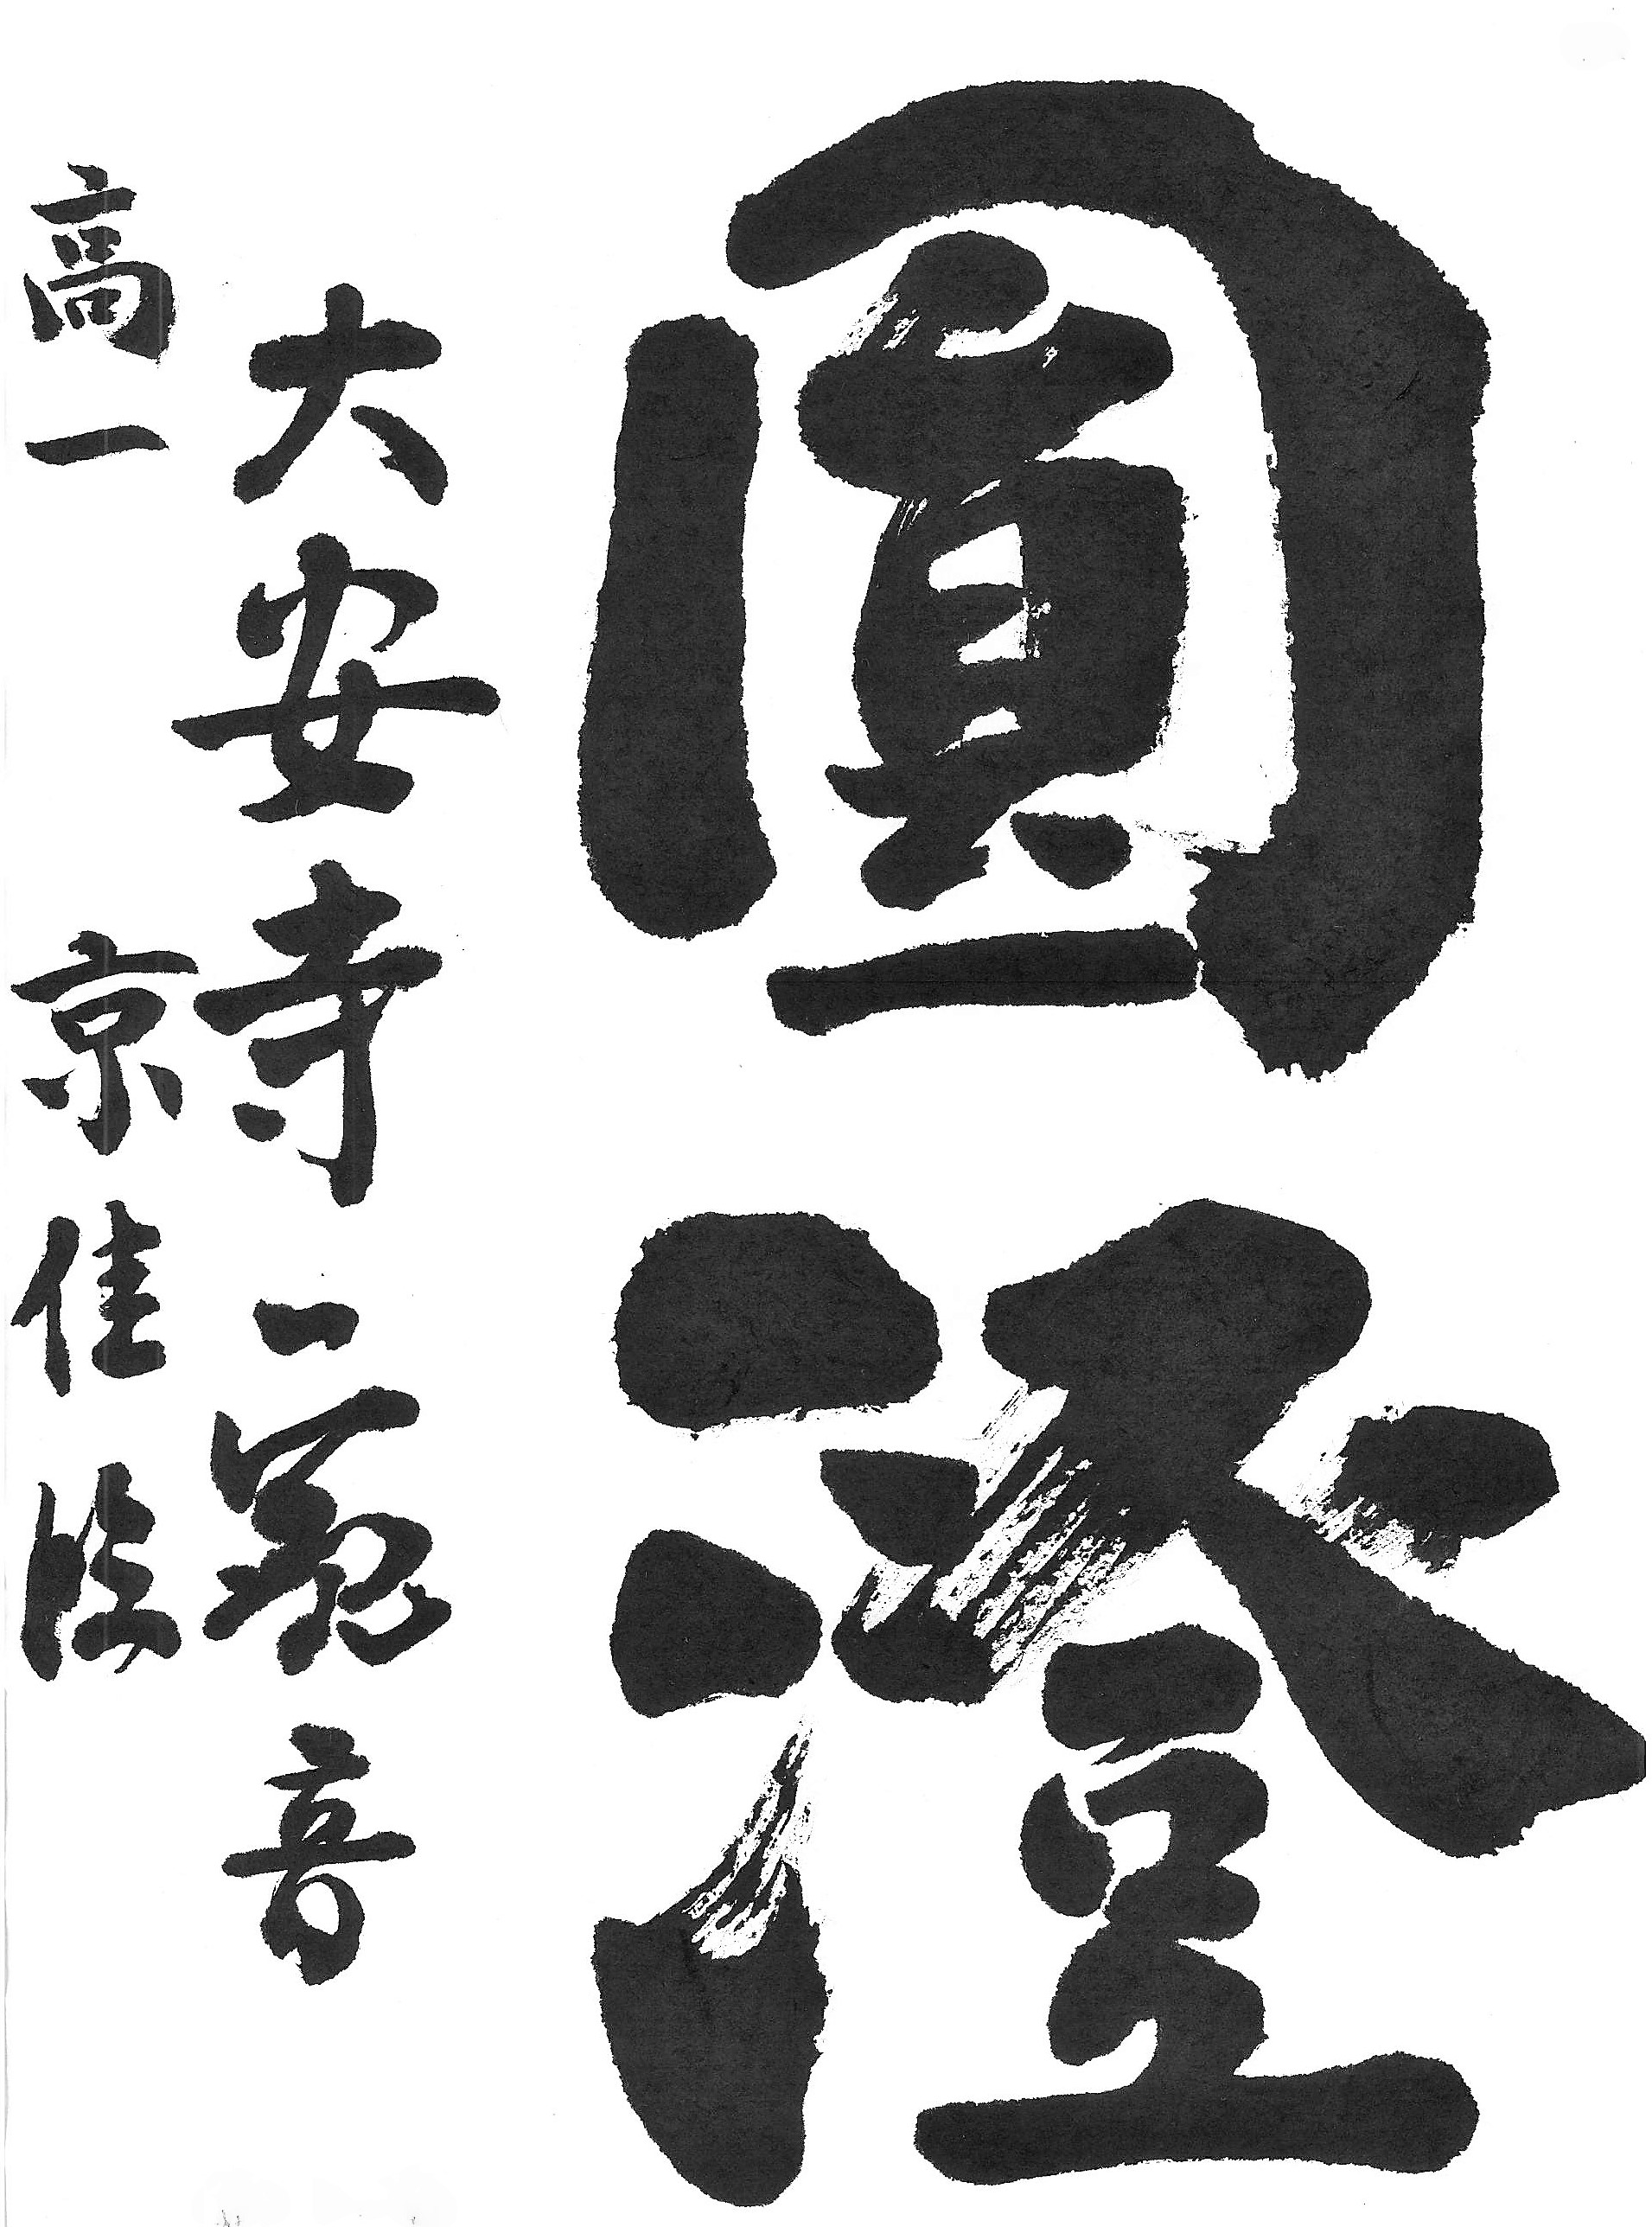 圓澄
大安寺一
音
高一 京佳臨